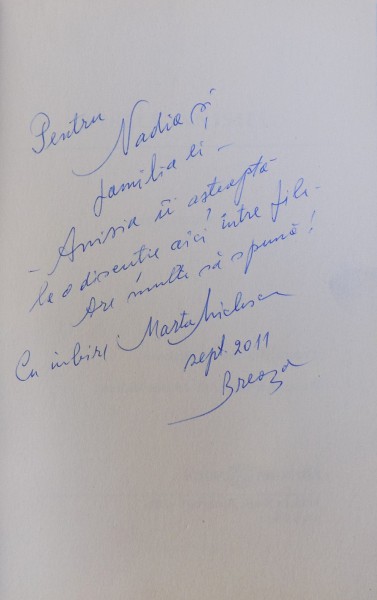 Pentru
Nadia și
familia ei –
– Anisia îi așteaptă
la o discuție aici, între file –
Are multe să spună!
Cu iubire, Marta
sept. 2011
Breaza